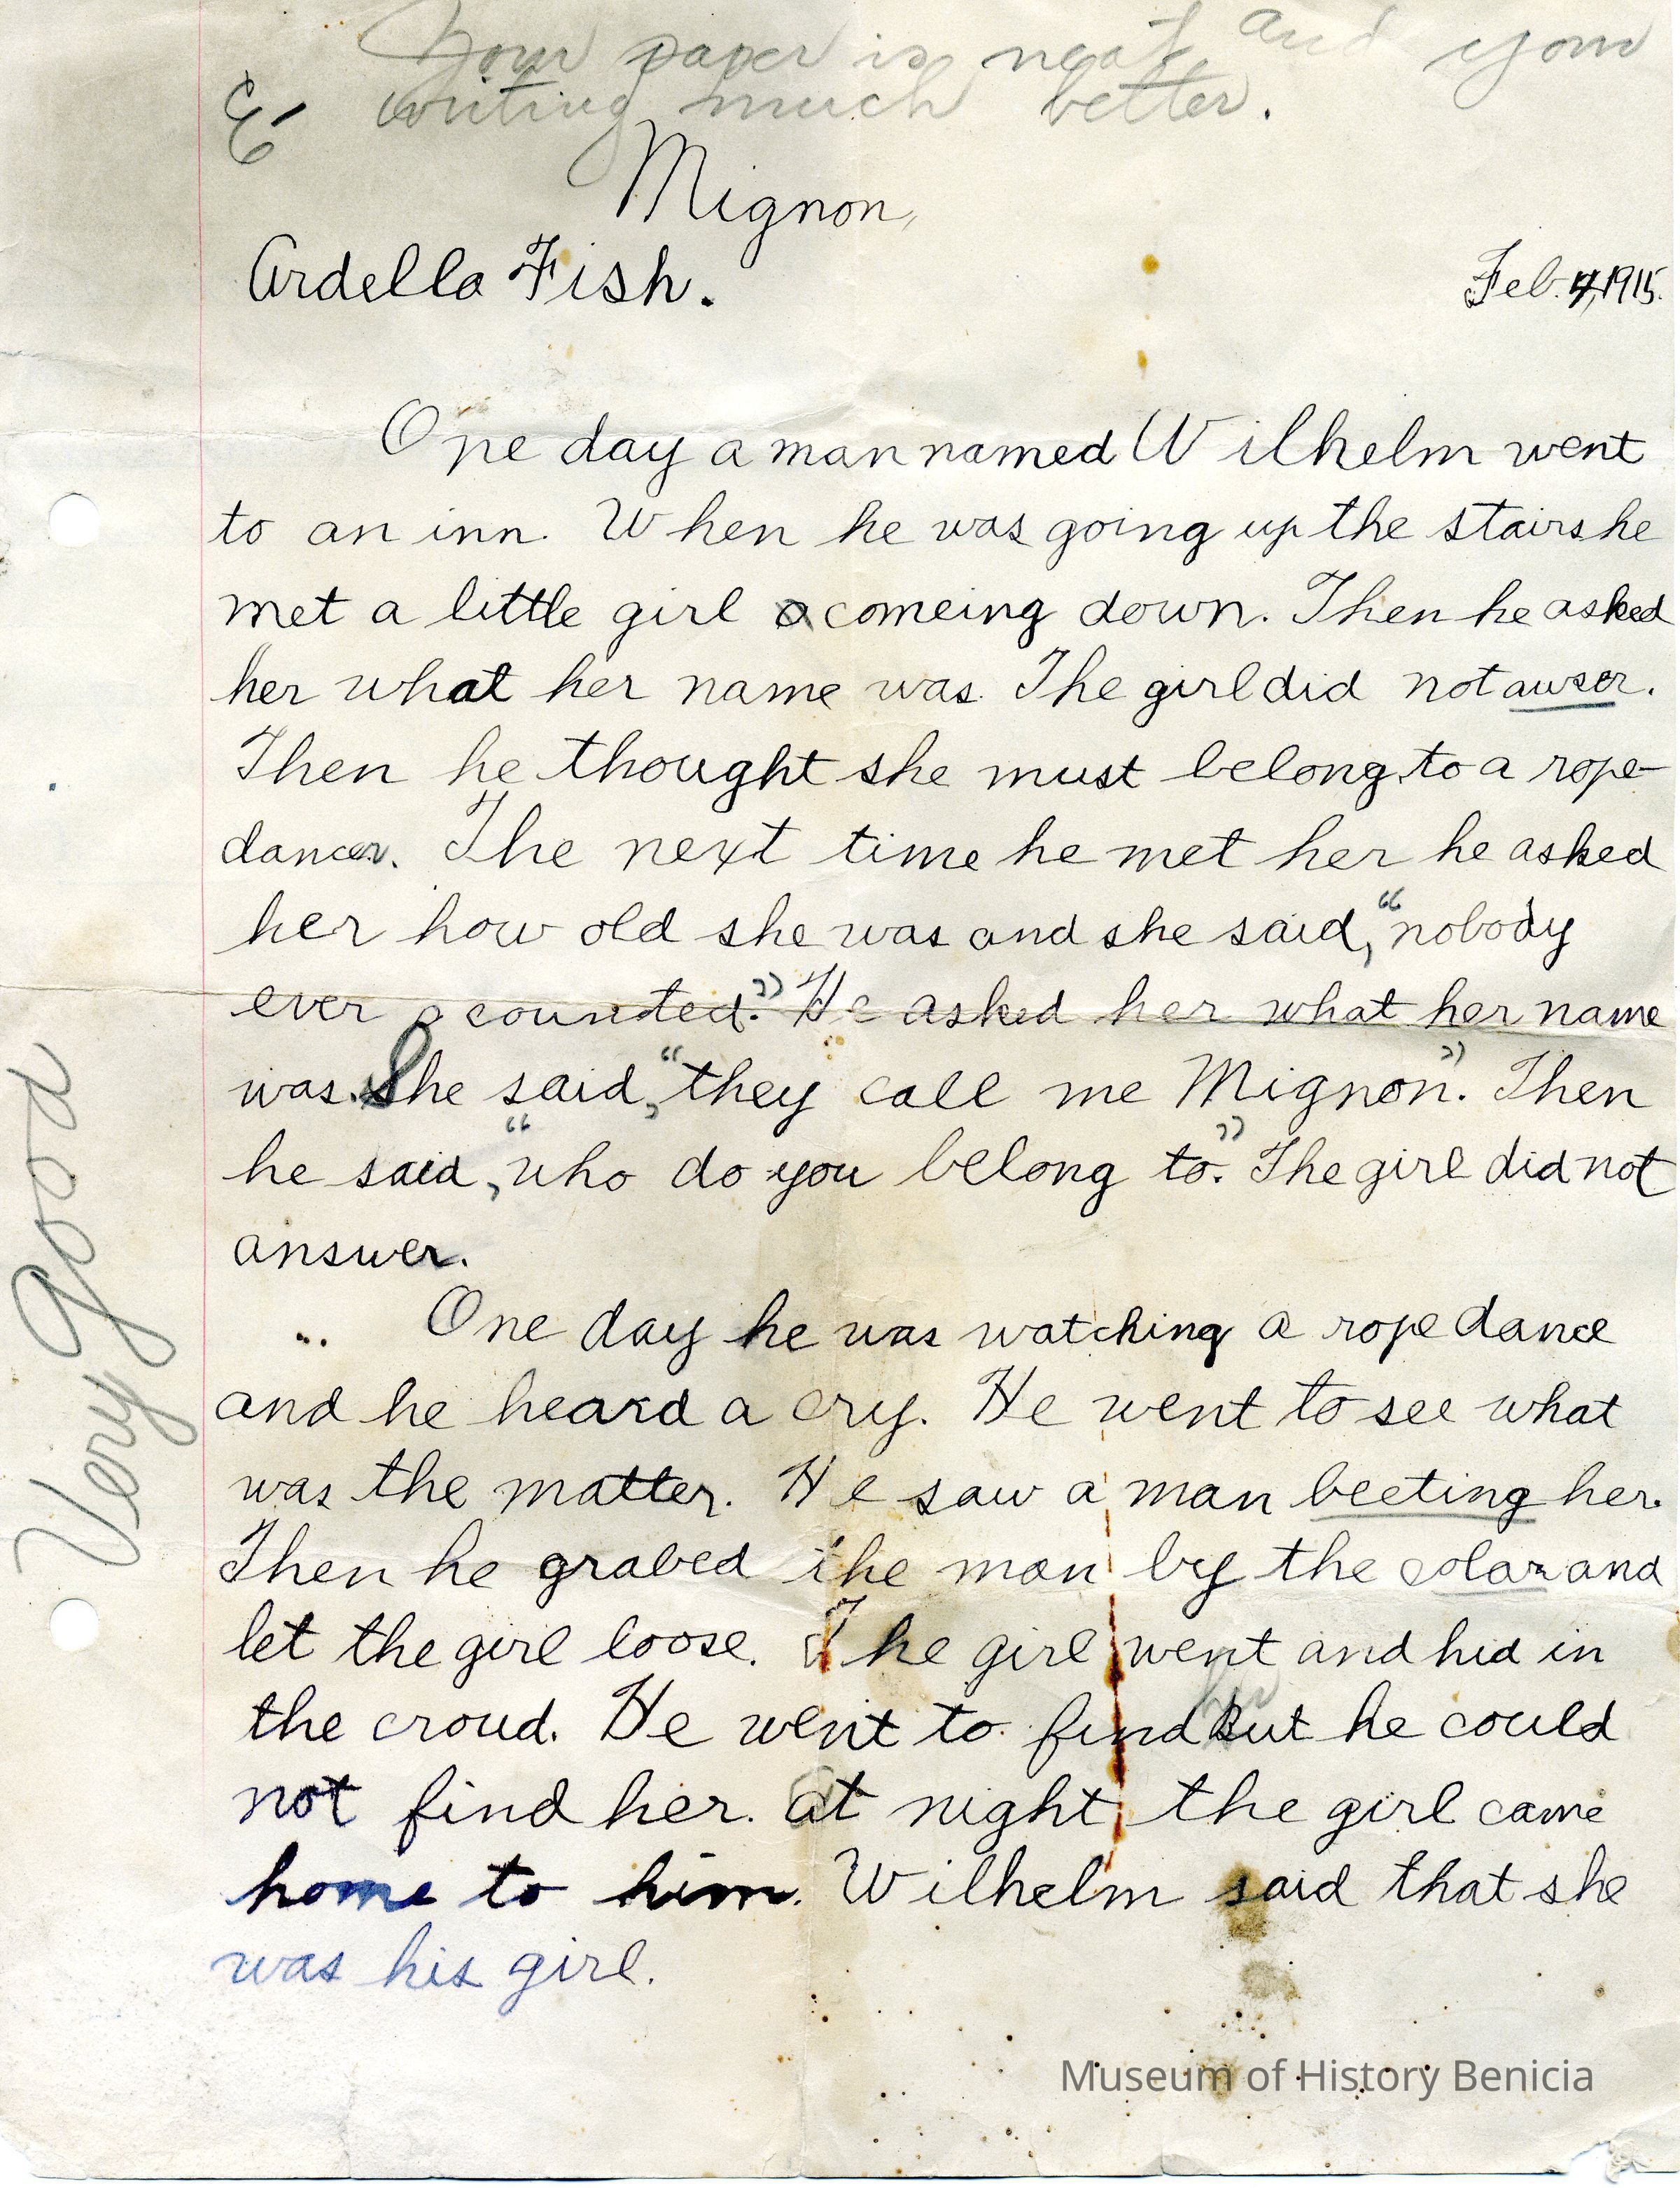 Your paper is neat and your
E- writing much better.
Mignon,
Ardella Fish.
Feb. 4, 1915.
One day a man named Wilhelm went
to an inn. When he was going up the stairs he
met a little girl comeing down. Then he asked
her what her name was. The girl did not awser.
Then he thought she must belong to a rope
dancer. The next time he met her he asked
her how old she was and she said, "nobody
ever counted." He asked her what her name
was. She said, "they call me Mignon". Then
he said, "who do you belong to." The girl did not
answer.
One day he was watching a rope dance
and he heard a cry. He went to see what
was the matter. He saw a man beeting her.
Then he grabed the man by the colar and
let the girl loose. The girl went and hid in
the croud. He went to find but he could
not find her. At night the girl came
home to him. Wilhelm said that she
was his girl.
Very good
Museum of History Benicia